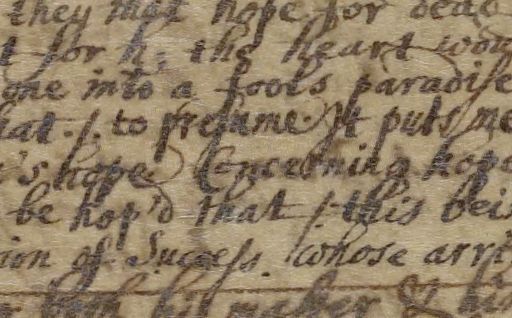 they that hope for dead
t for h; the heart wou
one into a fools paradise
hat. / to presume. It puts me
's hope Concerning hope
be hop'd that / this bei
ion of Success. whose arri
him his maker & hi